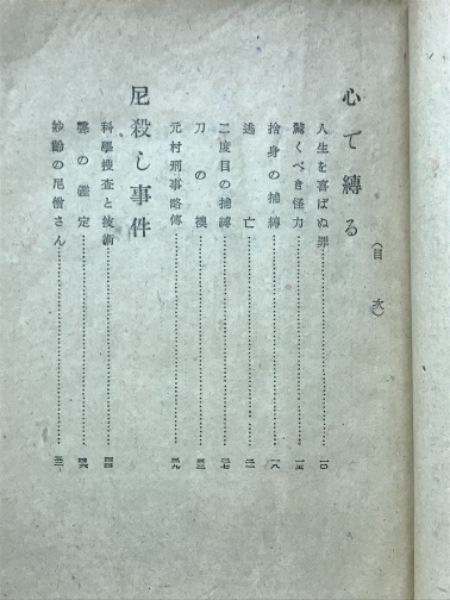 心で縛る
(目次)
人生を喜ばぬ罪 一〇
驚くべき怪力 一五
捨身の捕縛 一八
逃亡 二一
二度目の捕縛 二七
刀の
元村刑事略傳 三九
尼殺し事件
科學捜査と技術 四四
鑑定 四六
妙齢の尼僧さん 五二